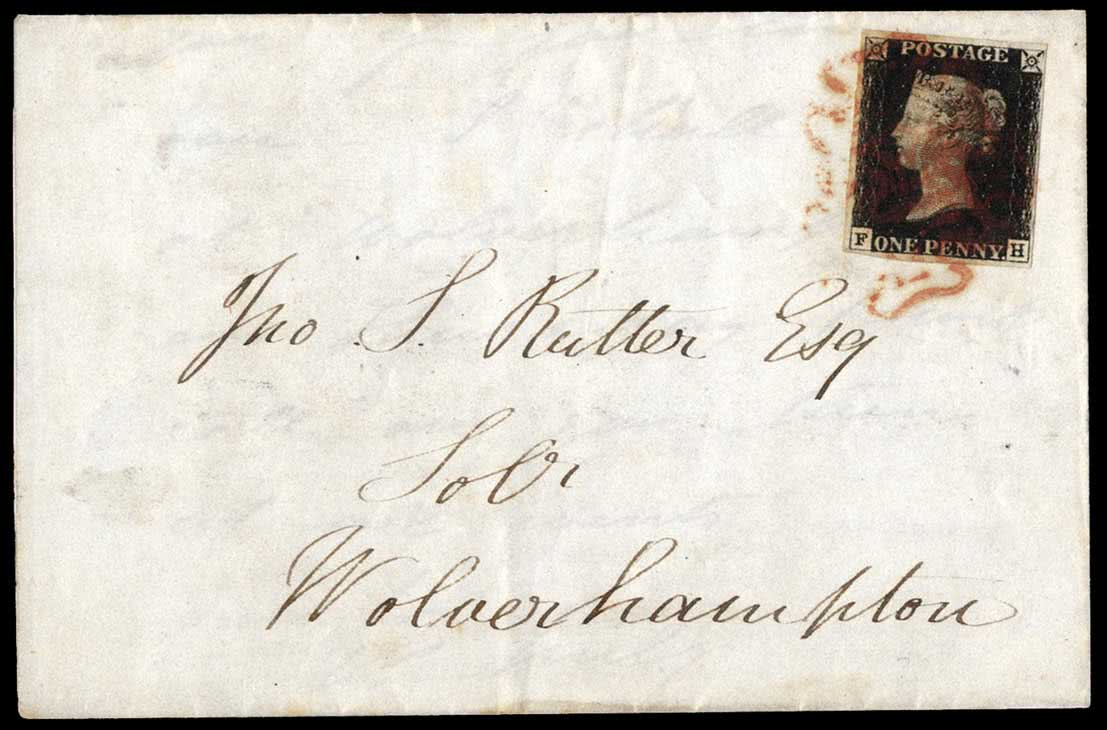 POSTAGE
F ONE PENNY. H
Jno S. Rutter Esq
Solr
Wolverhampton